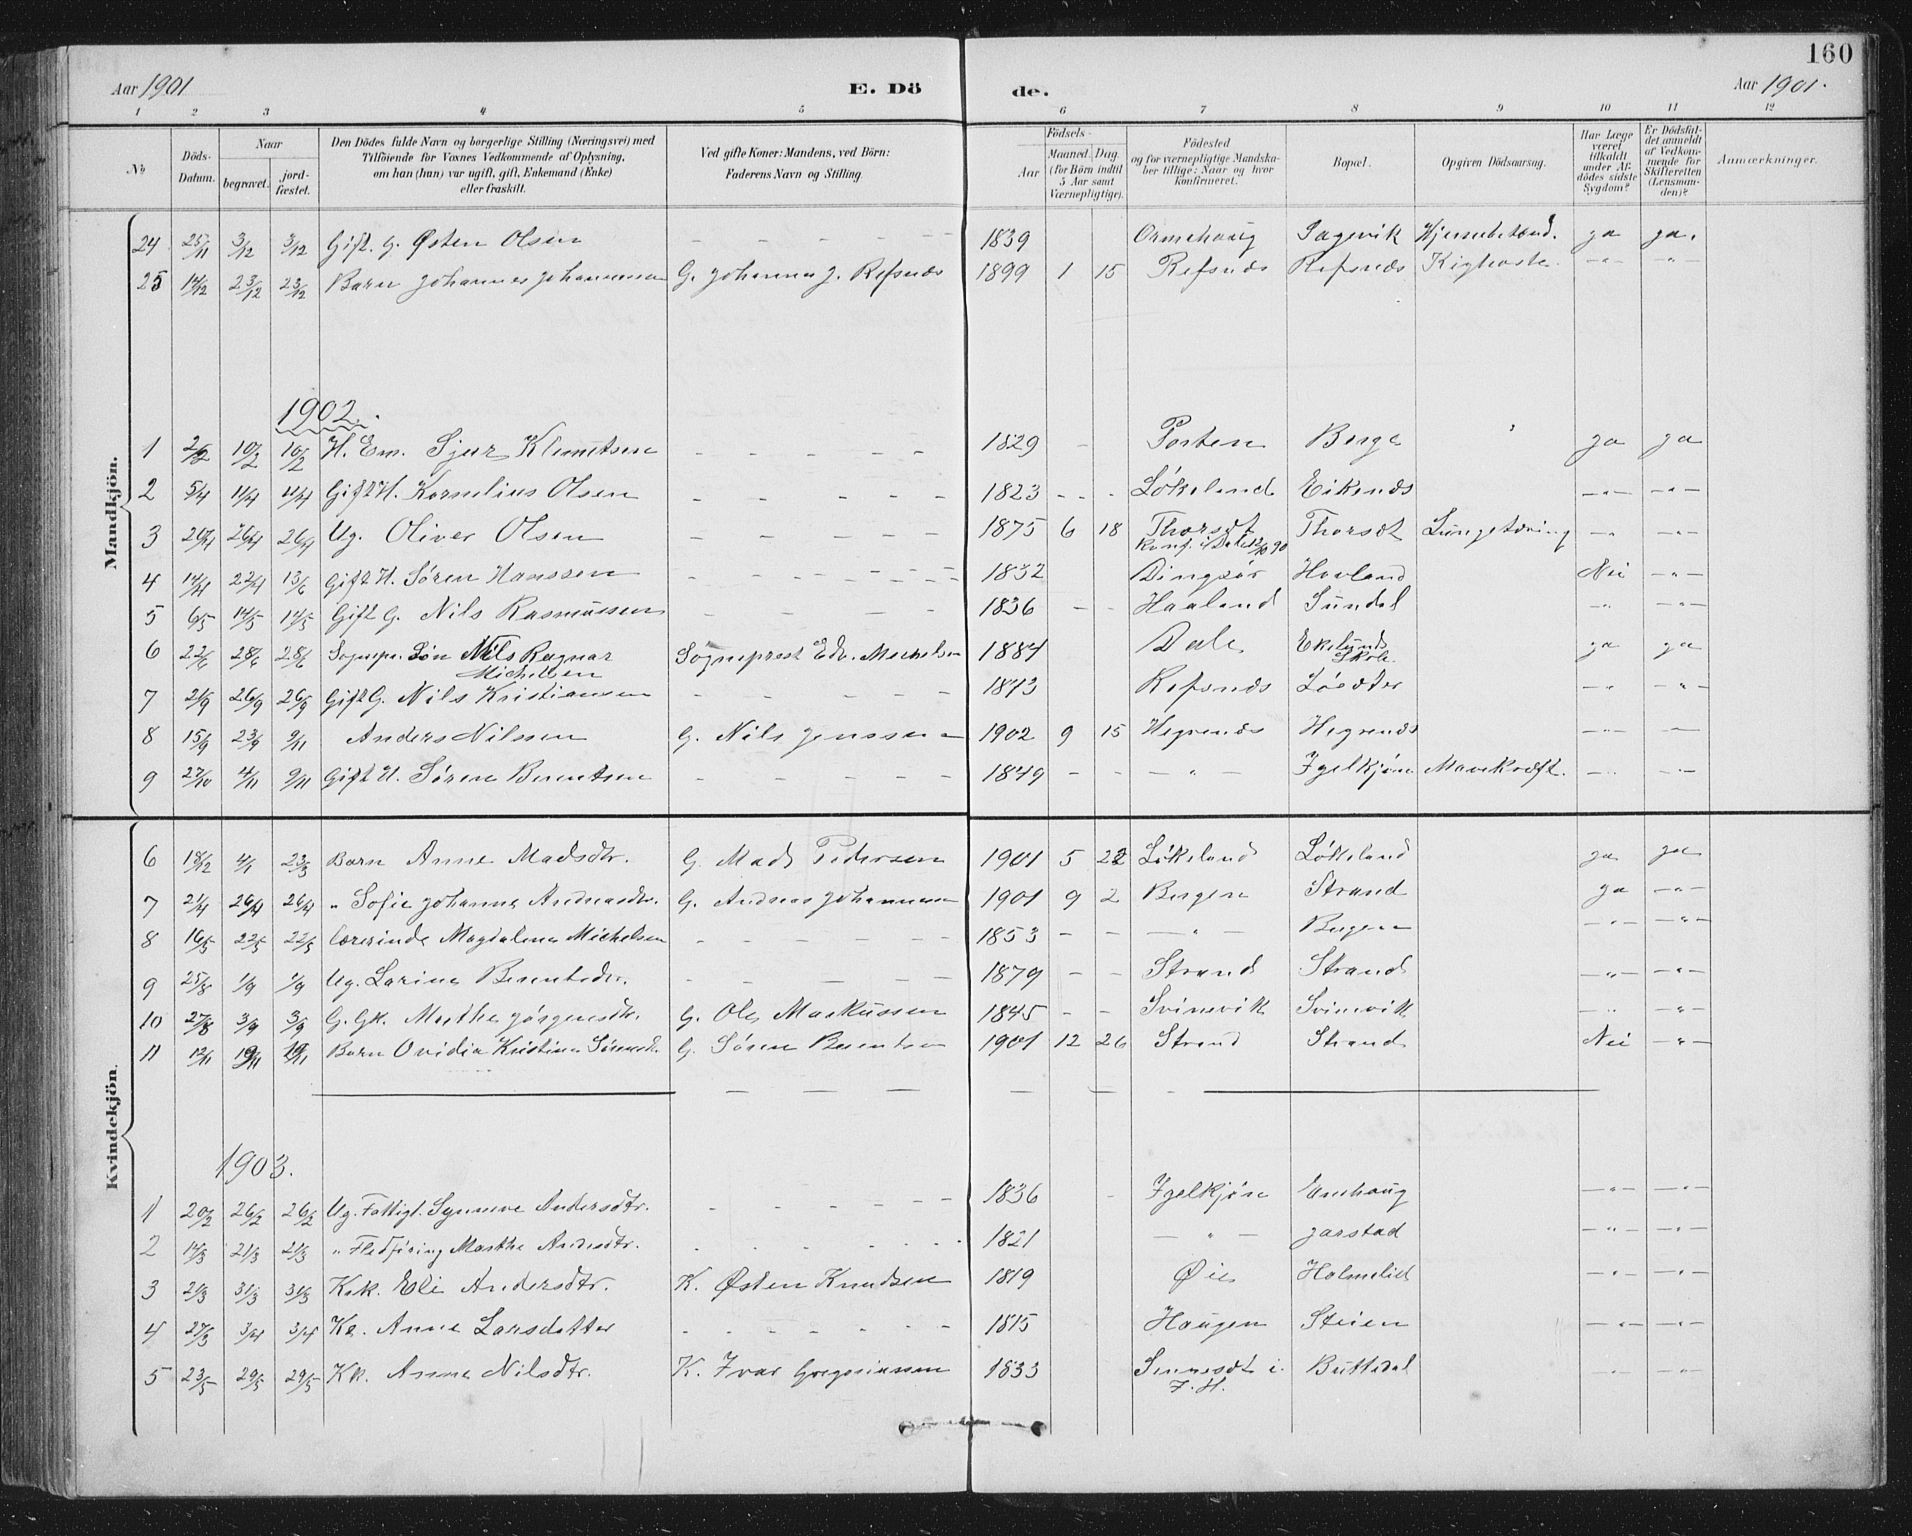 160
Aar 1901
E. Dö
de.
Aar 1901.
1 2 3 4 5 6 7 8 9 10 11 12
No
Döds-Datum.
Naar
begravet.
jord-fæstet.
Den Dödes fulde Navn og borgerlige Stilling (Næringsvei) med
Tilföiende for Voxnes Vedkommende af Oplysning,
om han (hun) var ugift, gift, Enkemand (Enke)
eller fraskilt.
Ved gifte Koner: Mandens, ved Börn:
Faderens Navn og Stilling.
Födsels-
Aar
Maaned. Dag.
(for Börn indtil
5 Aar samt
Værnepligtige).
Födested
og for værnepligtige Mandska-
ber tillige: Naar og hvor
konfirmeret.
Bopæl.
Opgiven Dödsaarsag.
Har Læge
været
tilkaldt
under Af-
dödes sidste
Sygdom?
Er Dödsfal-
det anmeldt
af Vedkom-
mende for
Skifteretten
(Lensman-
den)?
Anmærkninger.
Mandkjön.
24 25/11 3/12 3/12 Gift. G. Østen Olsen - - - - - 1839 Ormehaug Sagevik ja ja.
25 14/12 23/12 23/12 Barn Johannes Johannessen G. Johannes J. Refsnæs 1899 1 15 Refsnæs Refsnæs Kighoste -"- "
1902.
1 2/2 10/2 10/2 H. Em. Sjur Klemetsen - - - - - 1829 - Porten Berge ja ja
2 5/4 11/4 11/4 Gift H. Kornelius Olsen - - - - 1823 - - - Løkeland Eikenæs -"- -"-
3 20/4 26/4 26/4 Ug. Oliver Olsen - - - - 1875 6 18 Thorsdt Thorsdt Lungetæring -"- -"-
Konf. i Dale 12/10 90
4 14/4 22/4 13/6 Gift H. Søren Hanssen - - - - - 1832 Dingsør Hovland Nei -"-
5 6/5 14/5 14/5 Gift G. Nils Rasmussen - - - - 1836 - - Haaland Sundal -"- -"-
6 22/6 28/6 28/6 Sognepr. Søn Nils Ragnar Sogneprest Edv. Michelsen 1884 Dale Ekelunds ja ja
Michelsen Skole
7 21/9 26/9 26/9 Gift G. Nils Kristiansen - - - - 1873 Refsnæs -"- -"-
8 15/9 23/9 9/11 Anders Nilssen G. Nils Jenssen 1902 9 15 Hegrenæs Hegrenæs -"- -"-
9 27/10 4/11 9/11 Gift H. Søren Berentsen - - - - - 1849 - - -"- Igelkjøn Mavekræft. -"- -"-
Kvindekjön.
6 18/12 4/1 23/3 Barn Anne Madsdtr. G. Mads Pedersen 1901 5 22 Løkeland Løkeland ja ja
7 21/4 26/4 26/4 " Sofie Johanne Andreasdtr. G. Andreas Johannessen 1901 9 2 Bergen Strand ja -"-
8 16/5 22/5 22/5 Lærerinde Magdalena Michelsen - - - - - 1853 - - -"- Bergen -"- -"-
9 25/8 1/9 1/9 Ug. Larine Berentsdtr. - - - - 1879 - - Strand Strand -"- -"-
10 27/8 3/9 3/9 G. Gk. Marthe Jørgensdtr. G. Ole Markussen 1845 - - Svinevik Svinevik -"- -"-
11 12/11 19/11 19/11 Barn Ovidia Kristine Sørensd. G. Søren Berentsen 1901 12 26 Strand Strand Nei -"-
1903.
1 20/2 26/2 26/2 Ug. Fattigl. Synneve Andersdtr. - - - - - 1836 - Igelkjøn Enehaug -"- -"-
2 14/3 21/3 21/3 " Fledføring Marthe Andersdtr. - - - - - 1821 -"- Jarstad -"- -"-
3 21/3 31/3 31/3 Kek. Eli Andersdtr. K. Østen Knudsen 1819 Øie Holmelid -"- -"-
4 27/3 3/4 3/4 Ke. Anne Larsdatter - - - - - 1815 Haugen Steien -"- -"-
5 23/5 29/5 29/5 Kk. Anne Nilsdtr. K. Ivar Gregoriussen 1833 Sennesdt i Buttedal -"- -"-
I. H.